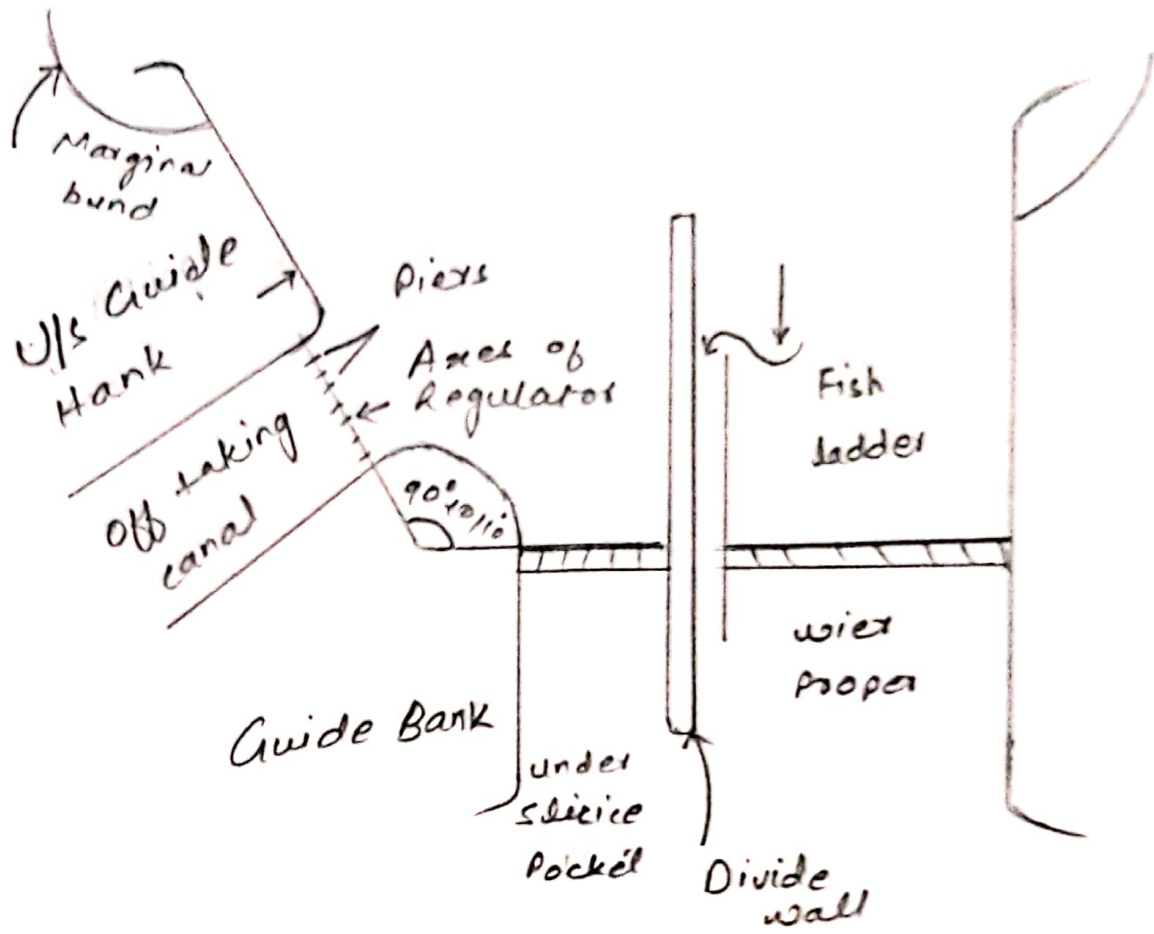 Marginal
bund
U/s Guide
Hank
Piers
Axes of
Regulator
Off taking
canal
90° to 110°
Fish
ladder
wier
proper
Guide Bank
under
slicice
pocket
Divide
wall